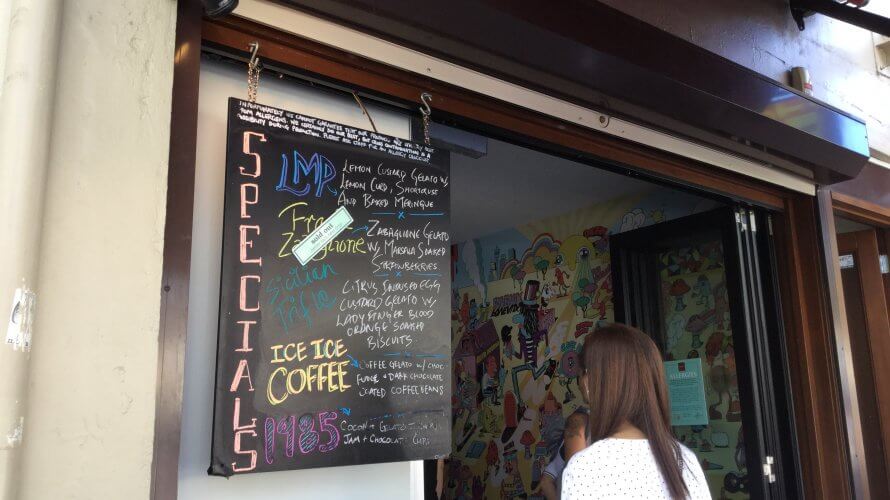 UNFORTUNATELY WE CANNOT GARANTEE THAT OUR PRODUCTS ARE
FROM ALLERGENS. WE CERTAINLY DO OUR BEST, BUT CROSS CONTAMINATION IS A
POSSIBILITY DURING PRODUCTION. PLEASE ASK STAFF FOR AN ALLERGY
SPECIALS
LMP
LEMON CUSTARD GELATO W/
LEMON CURD, SHORTCRUST
AND BAKED MERINGUE
Fra
Zabaglione
sold out
ZABAGLIONE GELATO
W/ MARSALA SOAKED
STRAWBERRIES
Sicilian
Trifle
CITRUS INFUSED EGG
CUSTARD GELATO W/
LADYFINGER BLOOD
ORANGE SOAKED
BISCUITS
ICE ICE
COFFEE
COFFEE GELATO W/ CHOC
FUDGE + DARK CHOCOLATE
COATED COFFEE BEANS
1985
COCONUT GELATO
JAM + CHOCOLATE
ALLERGIES